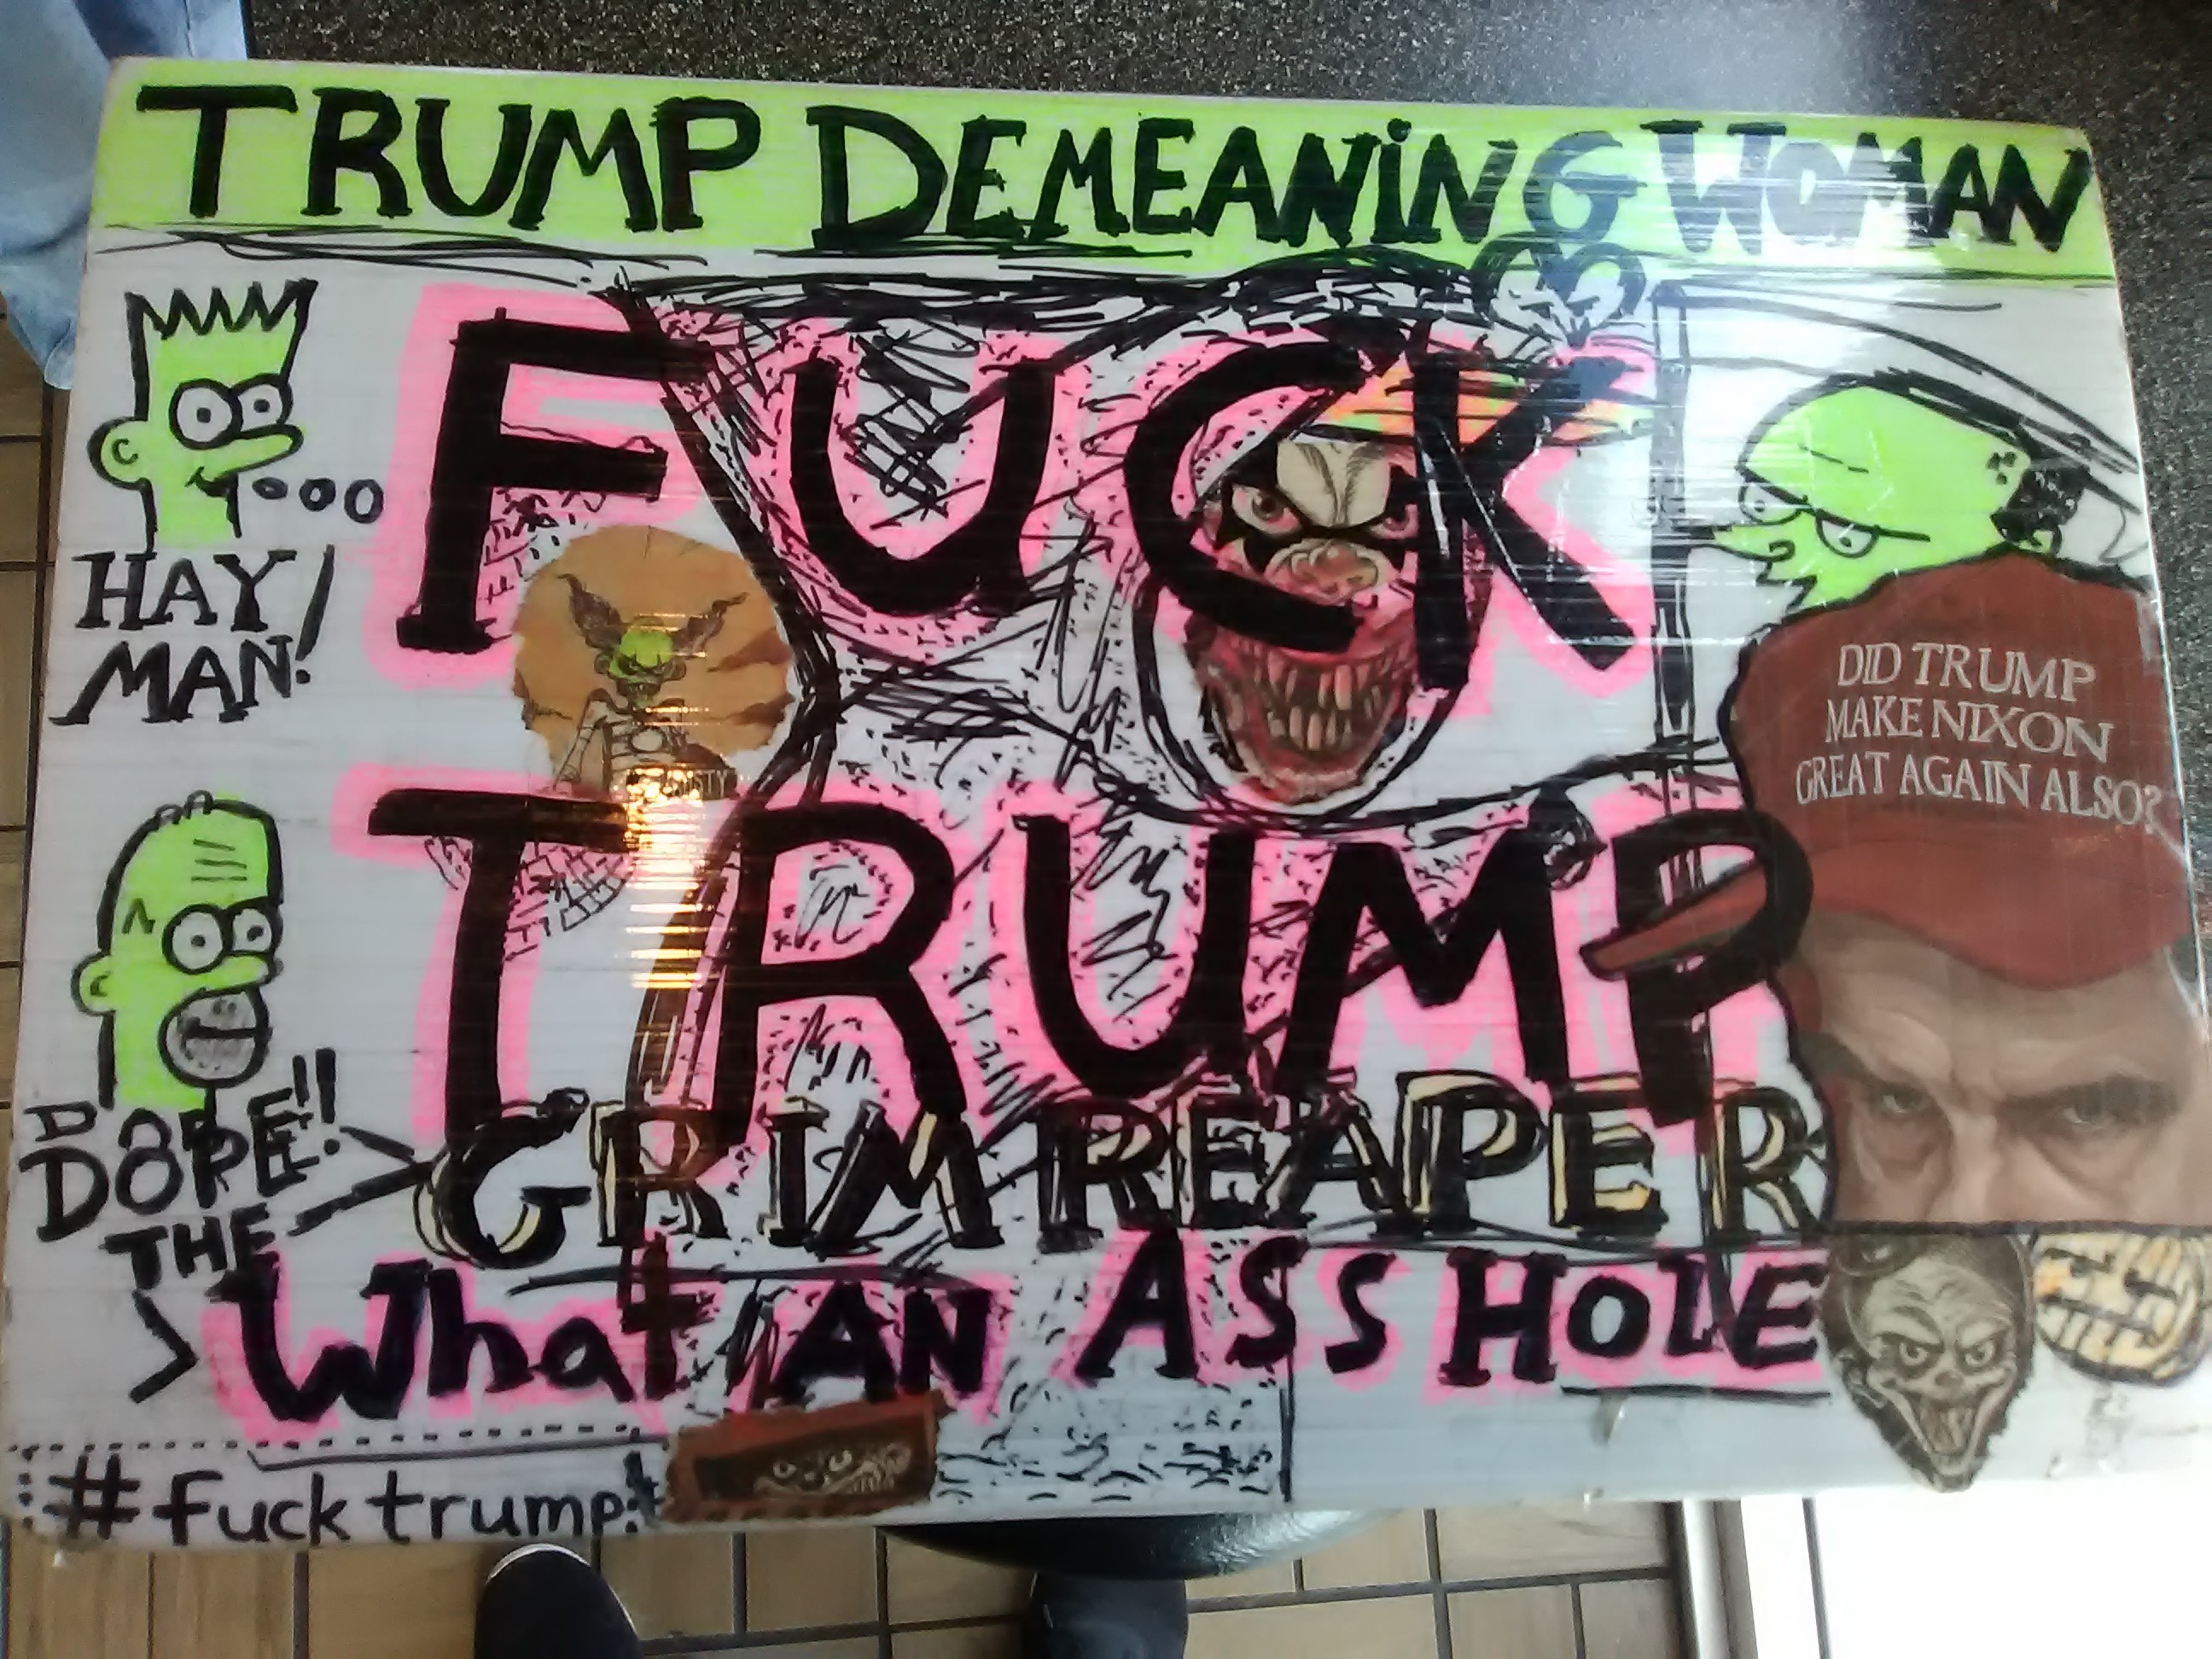 TRUMP DEMEANiNG WOMAN
FUCK
HAY
MAN!
DID TRUMP
MAKE NIXON
GREAT AGAIN ALSO?
TRUMP
DOPE!!
THE
GRIM REAPER
What AN ASSHOLE
#fucktrump!